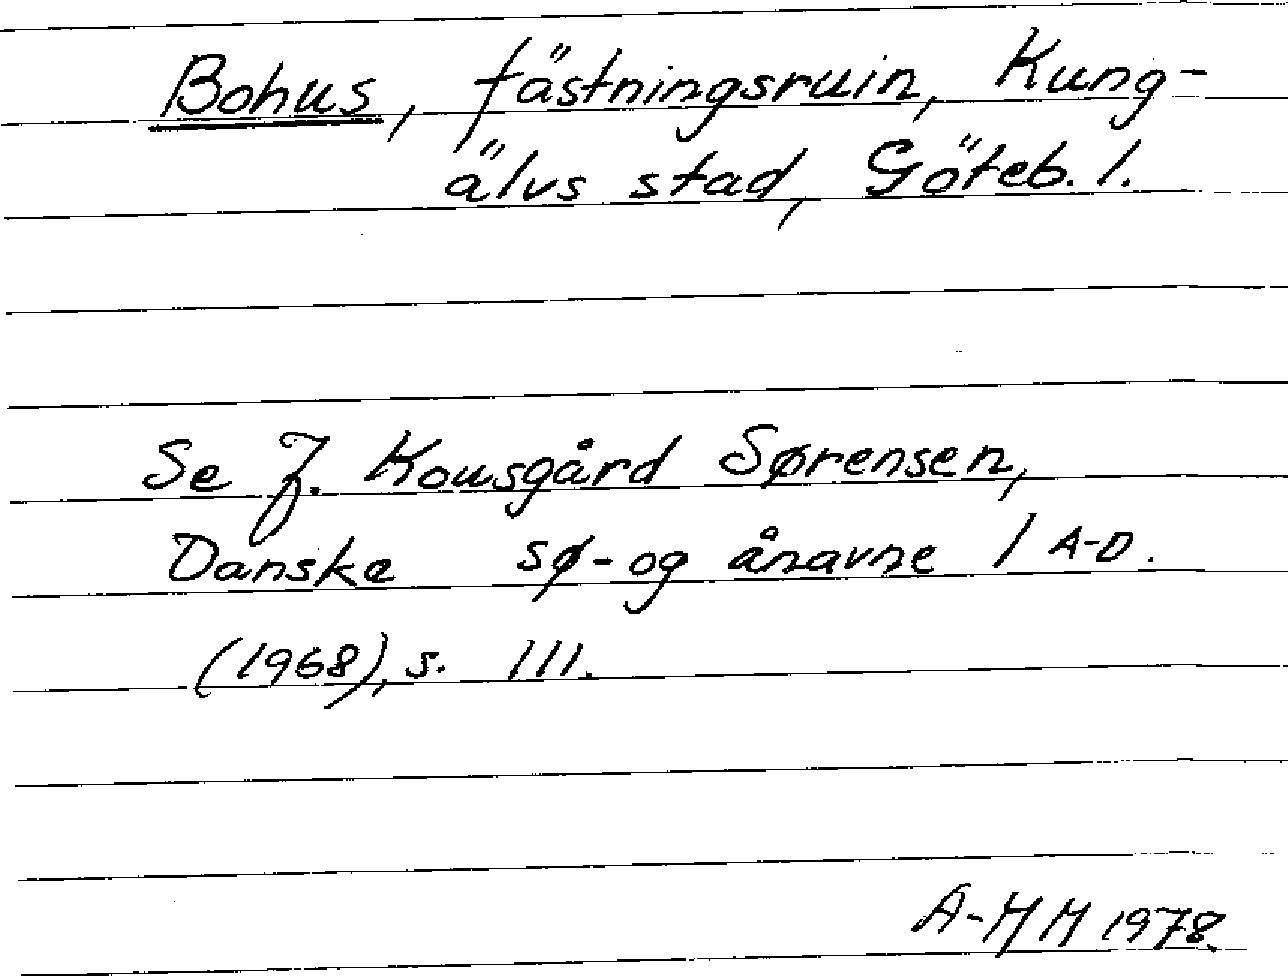 Bohus, fästningsruin, Kung-
älvs stad, Göteb. l.
Se J. Kousgård Sørensen,
Danske sø- og ånavne 1 A-D.
(1968), s. 111.
A-HH 1978.